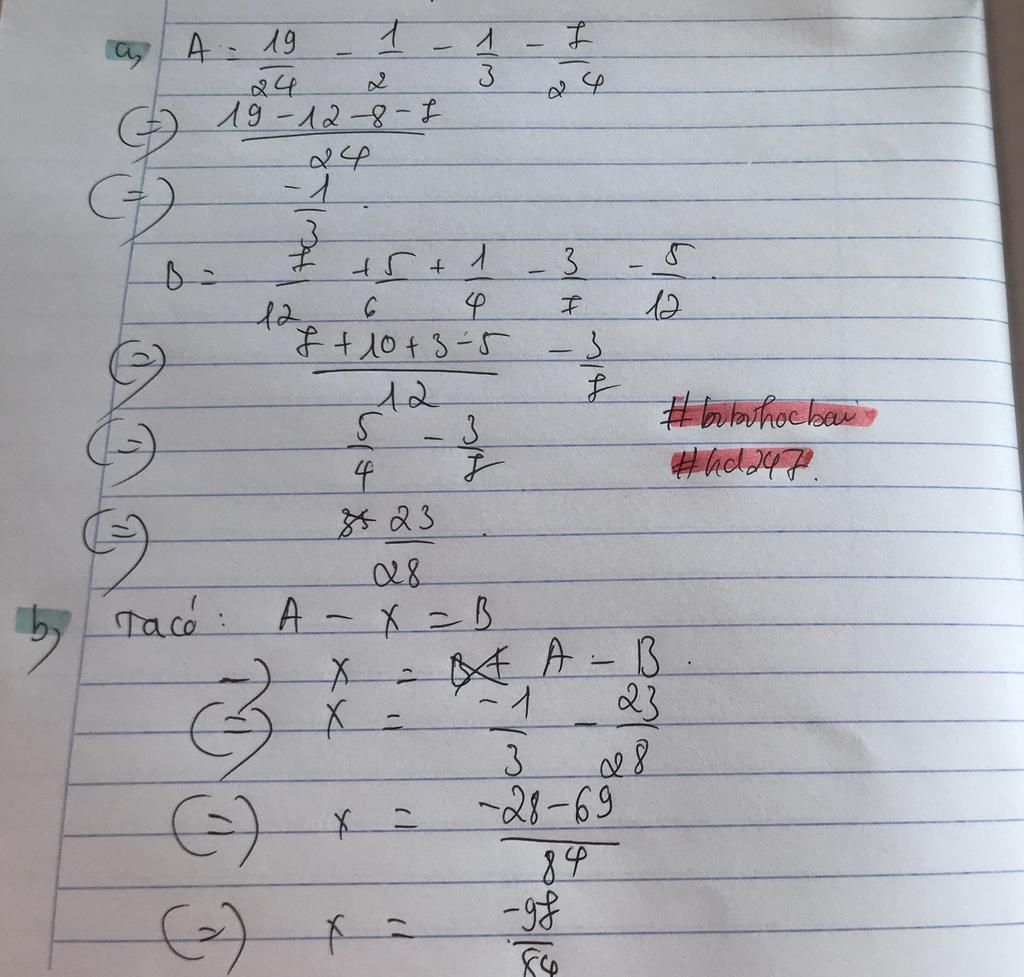 a, A = 19/24 - 1/2 - 1/3 - 7/24
(=) 19 - 12 - 8 - 7 / 24
(=) -1/3.
B = 7/12 + 5/6 + 1/4 - 3/7 - 5/12.
(=) 7 + 10 + 3 - 5 / 12 - 3/7
(=) 5/4 - 3/7
#bubuhocbai
#hd247.
(=) 23/28.
b, Ta có: A - x = B
-) x = A - B.
(=) x = -1/3 - 23/28
(=) x = -28 - 69 / 84
(=) x = -97/84